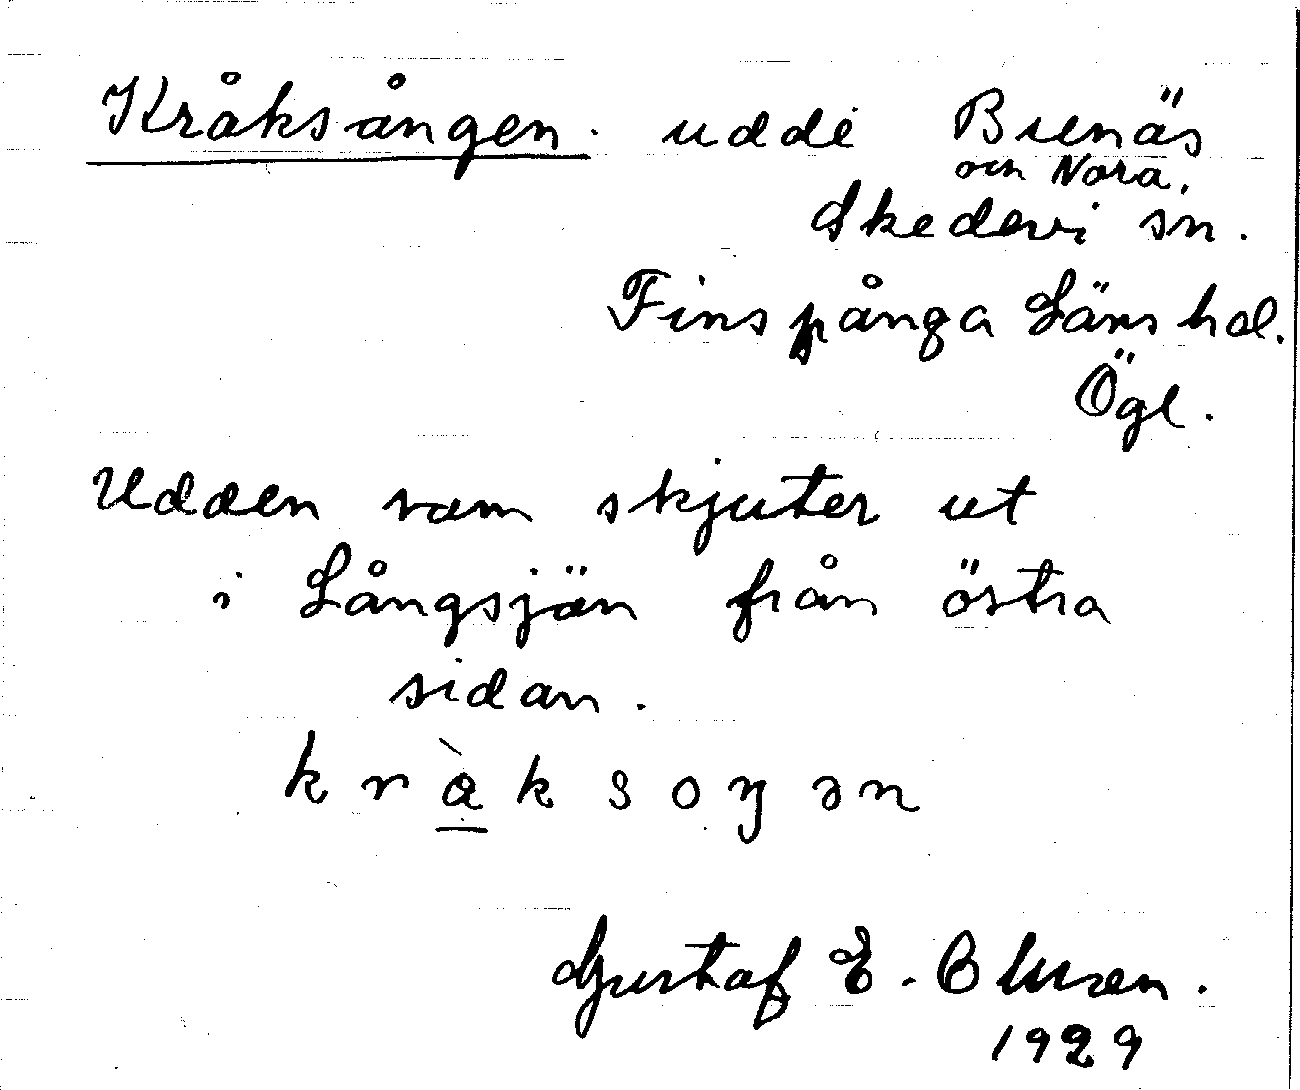 Kråksången. udde Brenäs
och Nora,
Skedevi sn.
Finspånga Läns hd.
Ögl.
Udden som skjuter ut
i Långsjön från östra
sidan.
kràksoŋən
Gustaf E.
1929